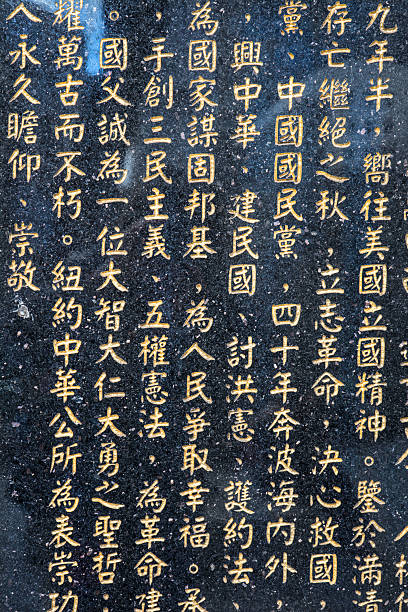 九年半，嚮往美國立國精神。鑒於滿清
存亡繼絕之秋，立志革命，決心救國
黨、中國國民黨，四十年奔波海內外，
，興中華、建民國、討洪憲、護約法、
為國家謀固邦基，為人民爭取幸福。承
，手創三民主義、五權憲法，為革命建
。國父誠為一位大智大仁大勇之聖哲；
耀萬古而不朽。紐約中華公所為表崇功
人永久瞻仰、崇敬，